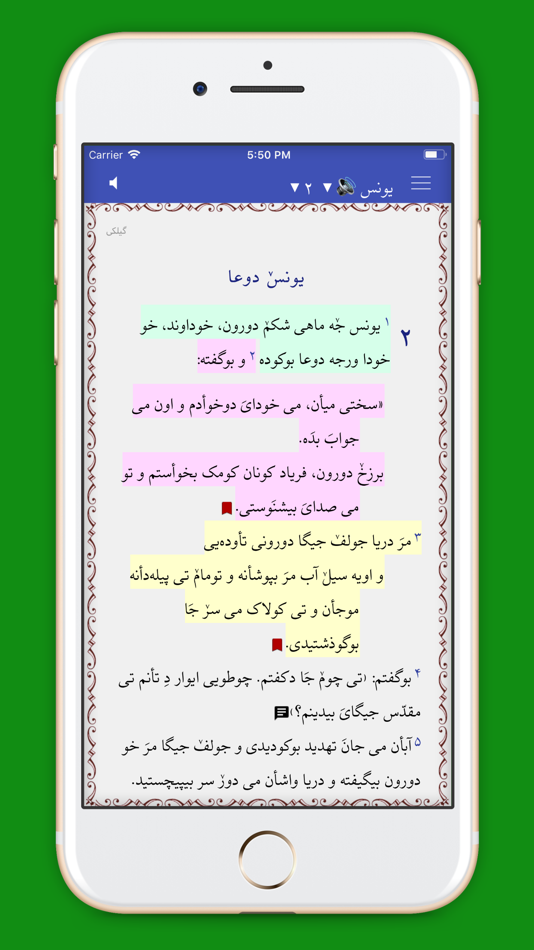 Carrier 5:50 PM
یونس ۲
گیلکی
یونسˇ دوعا
۲
۱ یونس جٚه ماهی شکمˇ دورون، خوداوند، خو
خودا ورجه دوعا بوکوده ۲ و بوگفته:
«سختی میأن، می خودایَ دوخوأدم و اون می
جوابَ بدَه.
برزخٚ دورون، فریاد کونان کومک بخوأستم و تو
می صدایَ بیشنَوستی.
۳ مرَ دریا جولفˇ جیگا دورونی تأوده‌یی
و اویه سیلˇ آب مرَ بپوشأنه و تومامˇ تی پیله‌دأنه
موجأن و تی کولاک می سرˇ جَا
بوگوذشتیدی.
۴ بوگفتم: ‹تی چومˇ جَا دکفتم. چوطویی ایوار دِ تأنم تی
مقدّس جیگایَ بیدینم؟›
۵ آبأن می جانَ تهدید بوکودیدی و جولفˇ جیگا مرَ خو
دورون بیگیفته و دریا واشأن می دورˇ سر بیپیچستید.